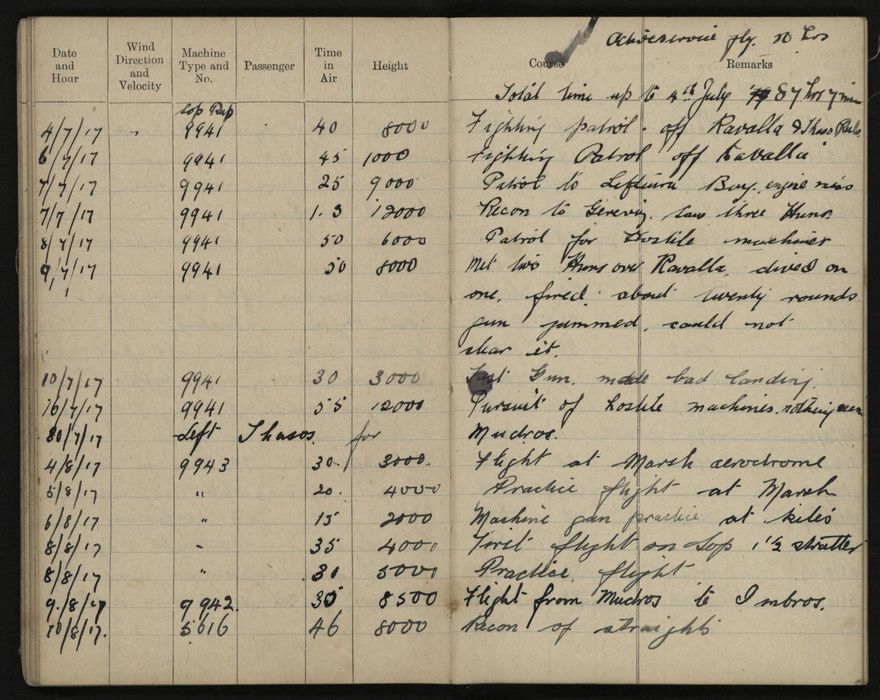 Active service fly. 10 hrs
Date and Hour Wind Direction and Velocity Machine Type and No. Passenger Time in Air Height Course Remarks
Total time up to 4th July 87 hrs 7 min
Sop Pup
4/7/17 " 9941 40 8000 Fighting patrol off Kavalla & Thasos
6/7/17 9941 45 1000 Fighting Patrol off Kavalla
7/7/17 9941 25 9000 Patrol to Leftera Bay, engine miss
7/7/17 9941 1.3 12000 Recon to Gereviz. saw three Huns.
8/7/17 9941 50 6000 Patrol for hostile machines
9/7/17 9941 50 8000 Met two Huns over Kavalla, dived on
one, fired about twenty rounds
gun jammed, could not
clear it.
10/7/17 9941 30 3000 Test Gun. made bad landing.
16/7/17 9941 55 12000 Pursuit of hostile machines. nothing seen
30/7/17 Left Thasos for Mudros.
4/8/17 9943 30. 3000. Flight at Marsh aerodrome
5/8/17 " 20. 4000 Practice flight at Marsh
6/8/17 " 15 2000 Machine gun practice at kites
8/8/17 " 35 4000 First flight on Sop 1½ strutter
8/8/17 " 30 5000 Practise flight
9/8/17 9942. 35 8500 Flight from Mudros to Imbros.
10/8/17. 5616 46 8000 Recon of straights